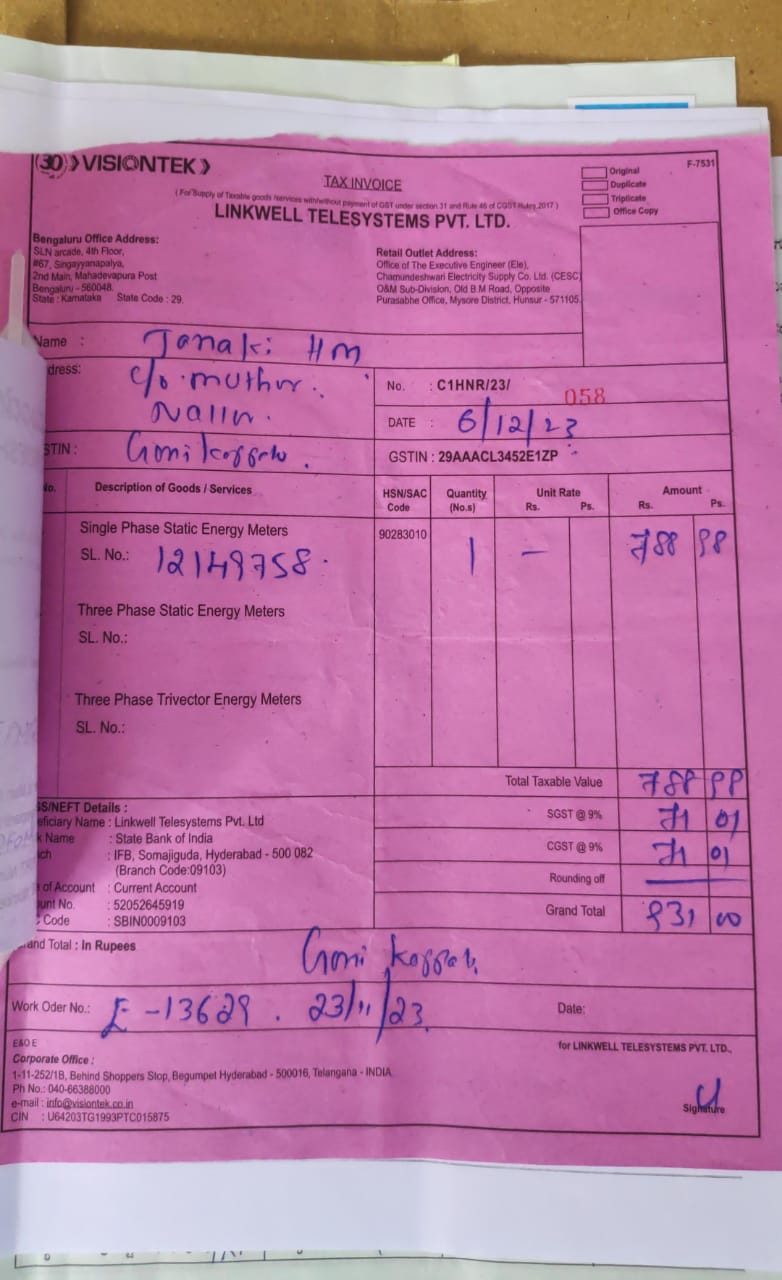 30 VISIONTEK
TAX INVOICE
F-7531
( For Supply of Taxable goods /services with/without payment of GST under section 31 and Rule 46 of CGST Rules,2017 )
LINKWELL TELESYSTEMS PVT. LTD.
Original
Duplicate
Triplicate
Office Copy
Bengaluru Office Address:
SLN arcade, 4th Floor,
#67, Singayyanapalya,
2nd Main, Mahadevapura Post
Bengaluru - 560048.
State : Karnataka State Code : 29.
Retail Outlet Address:
Office of The Executive Engineer (Ele),
Chamundeshwari Electricity Supply Co. Ltd. (CESC)
O&M Sub-Division, Old B.M Road, Opposite
Purasabhe Office, Mysore District, Hunsur - 571105.
Name : Janaki HM
dress: c/o. muthu.
Nallur.
STIN : Goni koppalu.
No. : C1HNR/23/ 058
DATE : 6/12/23
GSTIN : 29AAACL3452E1ZP
No. Description of Goods / Services HSN/SAC Code Quantity (No.s) Unit Rate Rs. Ps. Amount Rs. Ps.
Single Phase Static Energy Meters 90283010 1 - 788 98
SL. No.: 12149758.
Three Phase Static Energy Meters
SL. No.:
Three Phase Trivector Energy Meters
SL. No.:
Total Taxable Value 788 98
SGST @ 9% 71 01
CGST @ 9% 71 01
Rounding off
Grand Total 931 00
GS/NEFT Details :
eficiary Name : Linkwell Telesystems Pvt. Ltd
k Name : State Bank of India
ch : IFB, Somajiguda, Hyderabad - 500 082
(Branch Code:09103)
of Account : Current Account
unt No. : 52052645919
Code : SBIN0009103
and Total : In Rupees
Goni koppalu.
Work Oder No.: E-13629 . 23/11/23. Date:
E&O E
for LINKWELL TELESYSTEMS PVT. LTD.,
Corporate Office :
1-11-252/1B, Behind Shoppers Stop, Begumpet Hyderabad - 500016, Telangana - INDIA.
Ph No.: 040-66388000
e-mail : info@visiontek.co.in
CIN : U64203TG1993PTC015875
Signature